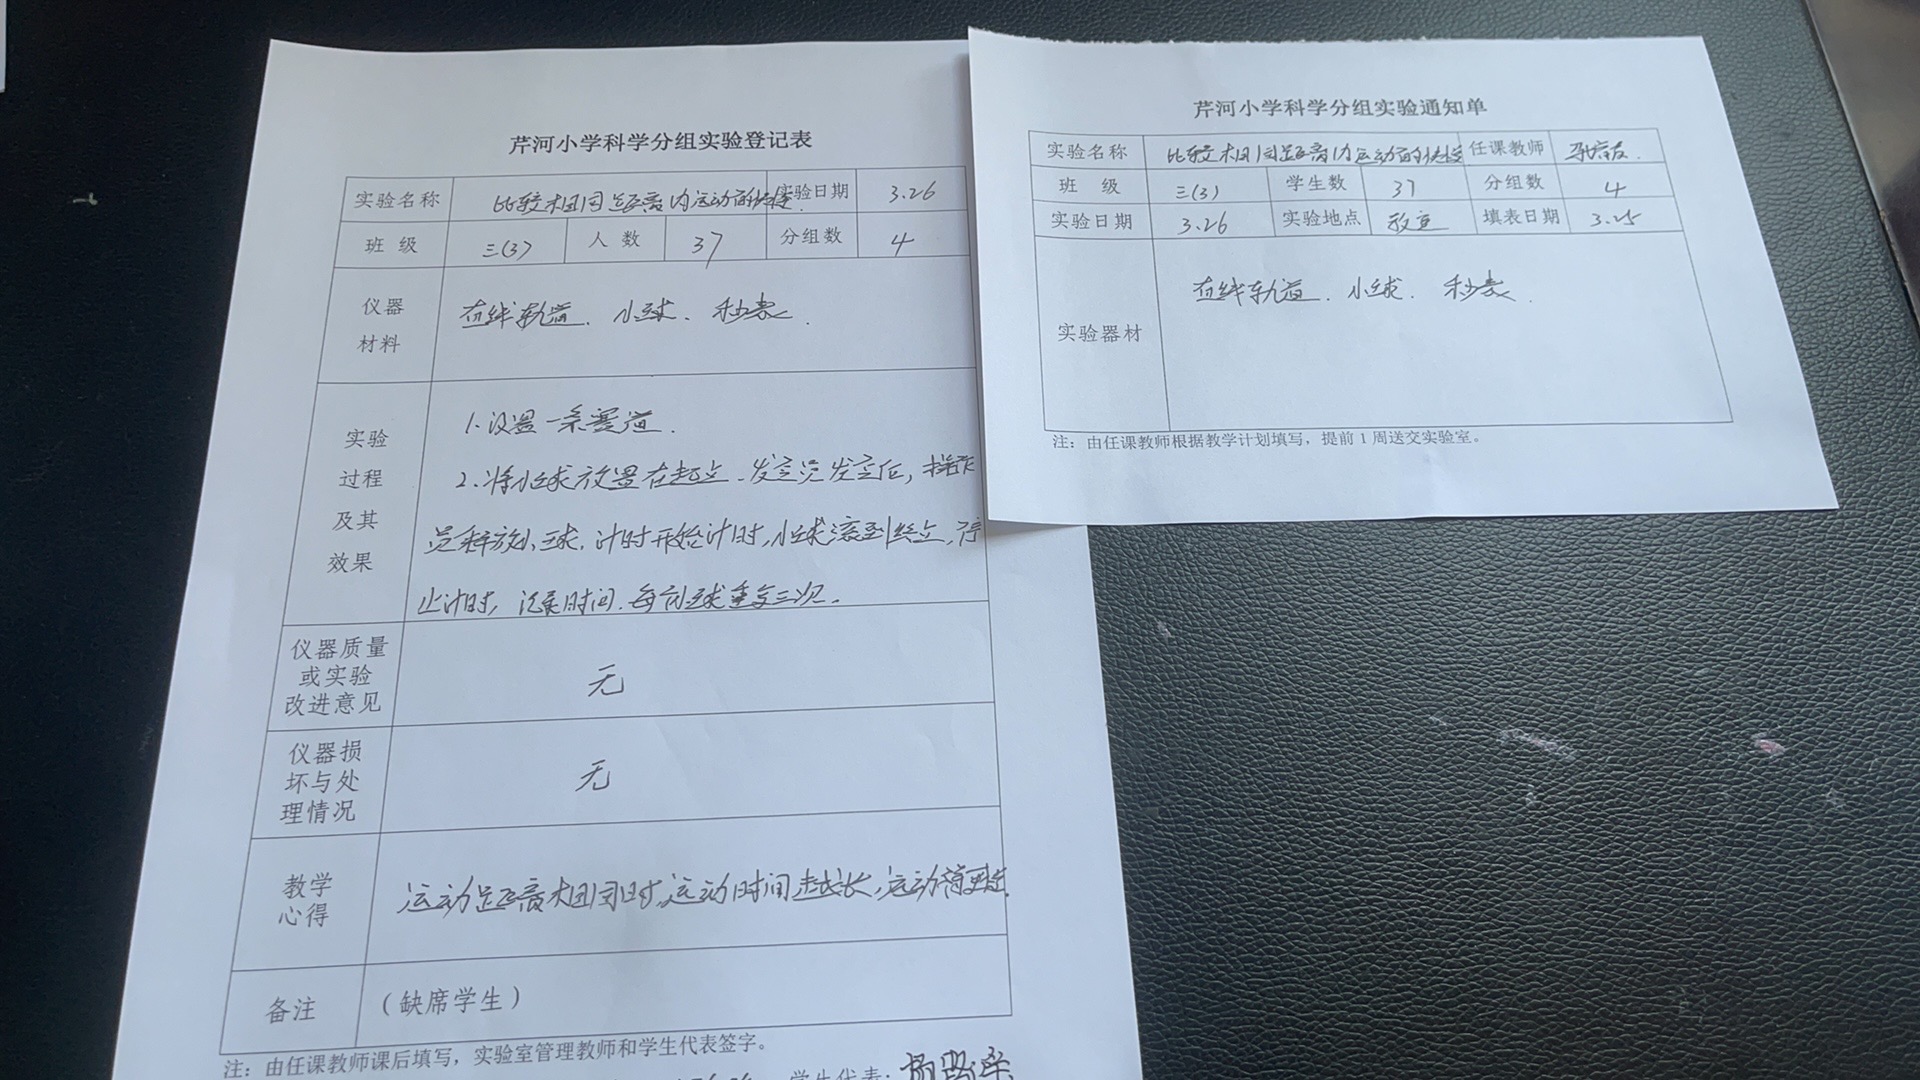 芹河小学科学分组实验登记表
实验名称 比较相同距离内运动的快慢 实验日期 3.26
班 级 三(3) 人 数 37 分组数 4
仪器材料 直线轨道、小球、秒表.
实验过程及其效果 1.设置一条赛道.
2.将小球放置在起点、发令员发令后,操作
员释放小球,计时开始计时,小球滚到终点,停
止计时,记录时间.每个小球重复三次.
仪器质量或实验改进意见 无
仪器损坏与处理情况 无
教学心得 运动距离相同时,运动时间越长,运动
备注 (缺席学生)
注:由任课教师课后填写,实验室管理教师和学生代表签字。
学生代表:
芹河小学科学分组实验通知单
实验名称 比较相同距离内运动的快慢 任课教师
班 级 三(3) 学生数 37 分组数 4
实验日期 3.26 实验地点 教室 填表日期 3.25
实验器材 直线轨道、小球、秒表.
注:由任课教师根据教学计划填写,提前1周送交实验室。